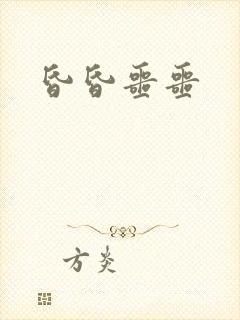 昏昏噩噩
方炎